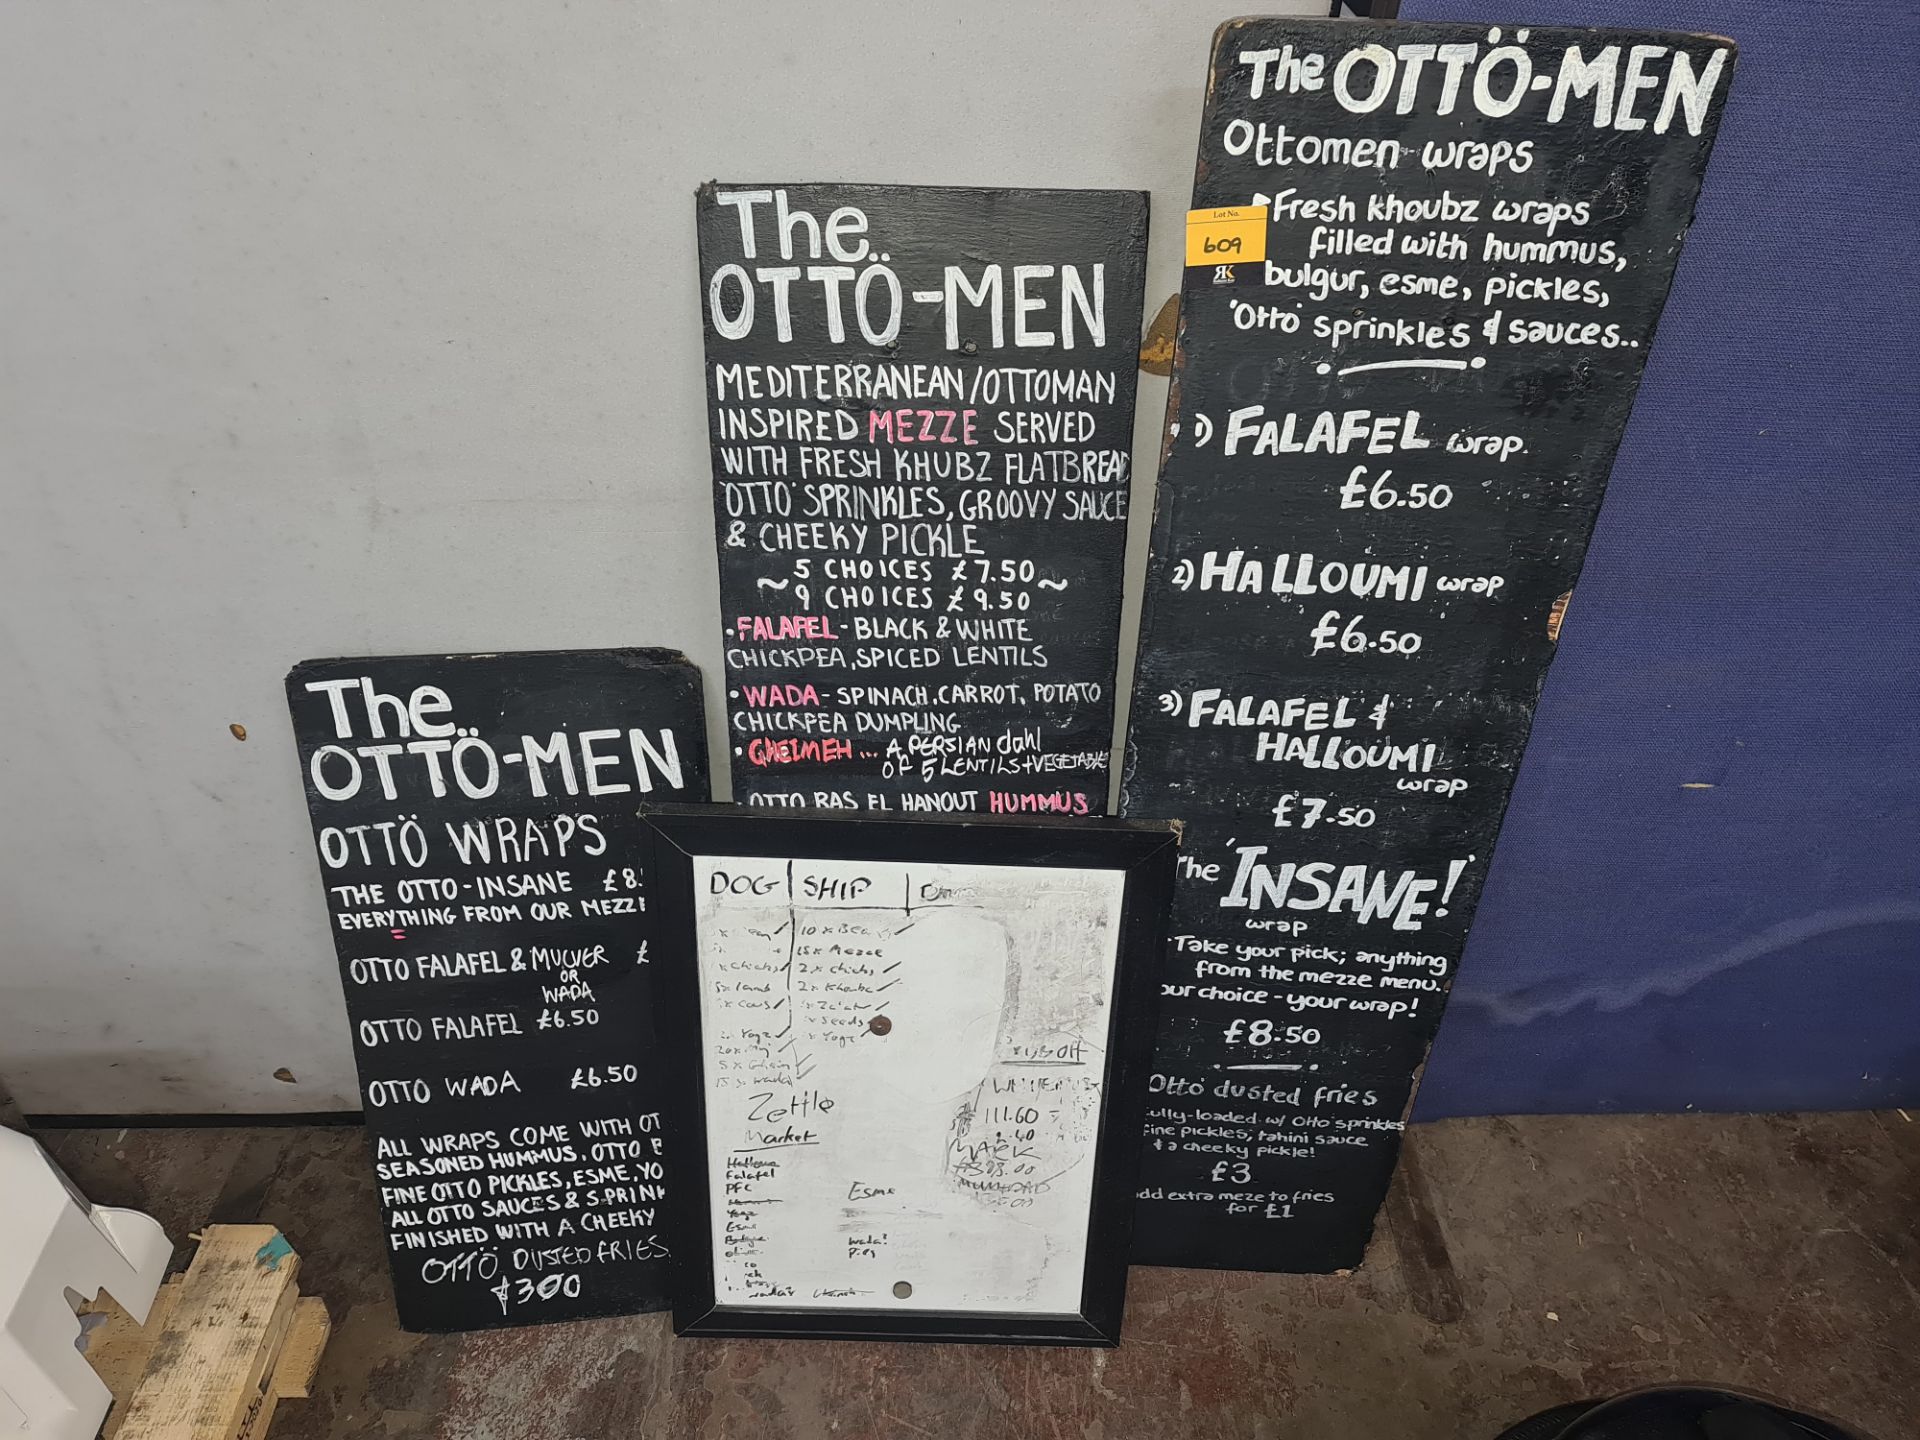 The
OTTÖ-MEN
OTTÖ WRAPS
THE OTTO-INSANE £8.
EVERYTHING FROM OUR MEZZE
OTTO FALAFEL & MUCVER £
OR
WADA
OTTO FALAFEL £6.50
OTTO WADA £6.50
ALL WRAPS COME WITH OT
SEASONED HUMMUS, OTTO B
FINE OTTO PICKLES, ESME, YO
ALL OTTO SAUCES & SPRINK
FINISHED WITH A CHEEKY
OTTÖ DUSTED FRIES
£300
The
OTTÖ-MEN
MEDITERRANEAN/OTTOMAN
INSPIRED MEZZE SERVED
WITH FRESH KHUBZ FLATBREAD
'OTTO' SPRINKLES, GROOVY SAUCE
& CHEEKY PICKLE
~ 5 CHOICES £7.50 ~
9 CHOICES £9.50
• FALAFEL - BLACK & WHITE
CHICKPEA, SPICED LENTILS
• WADA - SPINACH, CARROT, POTATO
CHICKPEA DUMPLING
• GHEIMEH ... A PERSIAN dahl
OF 5 LENTILS + VEGETABLE
• OTTO RAS EL HANOUT HUMMUS
DOG SHIP
10 x
15 x Mezze
2 x chichs
2 x
x Seeds
x Yogz
Zettle
Market
Falafel
PFC
Esme
wada?
111.60
2.40
MARK
The OTTÖ-MEN
Ottomen wraps
Fresh khoubz wraps
filled with hummus,
bulgur, esme, pickles,
'Otto' sprinkles & sauces..
Lot No.
609
RK
1) FALAFEL wrap.
£6.50
2) HALLOUMI wrap
£6.50
3) FALAFEL &
HALLOUMI
wrap
£7.50
The 'INSANE!'
wrap
Take your pick; anything
from the mezze menu.
our choice - your wrap!
£8.50
Otto dusted fries
Fully-loaded w/ Otto sprinkles
fine pickles, tahini sauce
& a cheeky pickle!
£3
add extra meze to fries
for £1